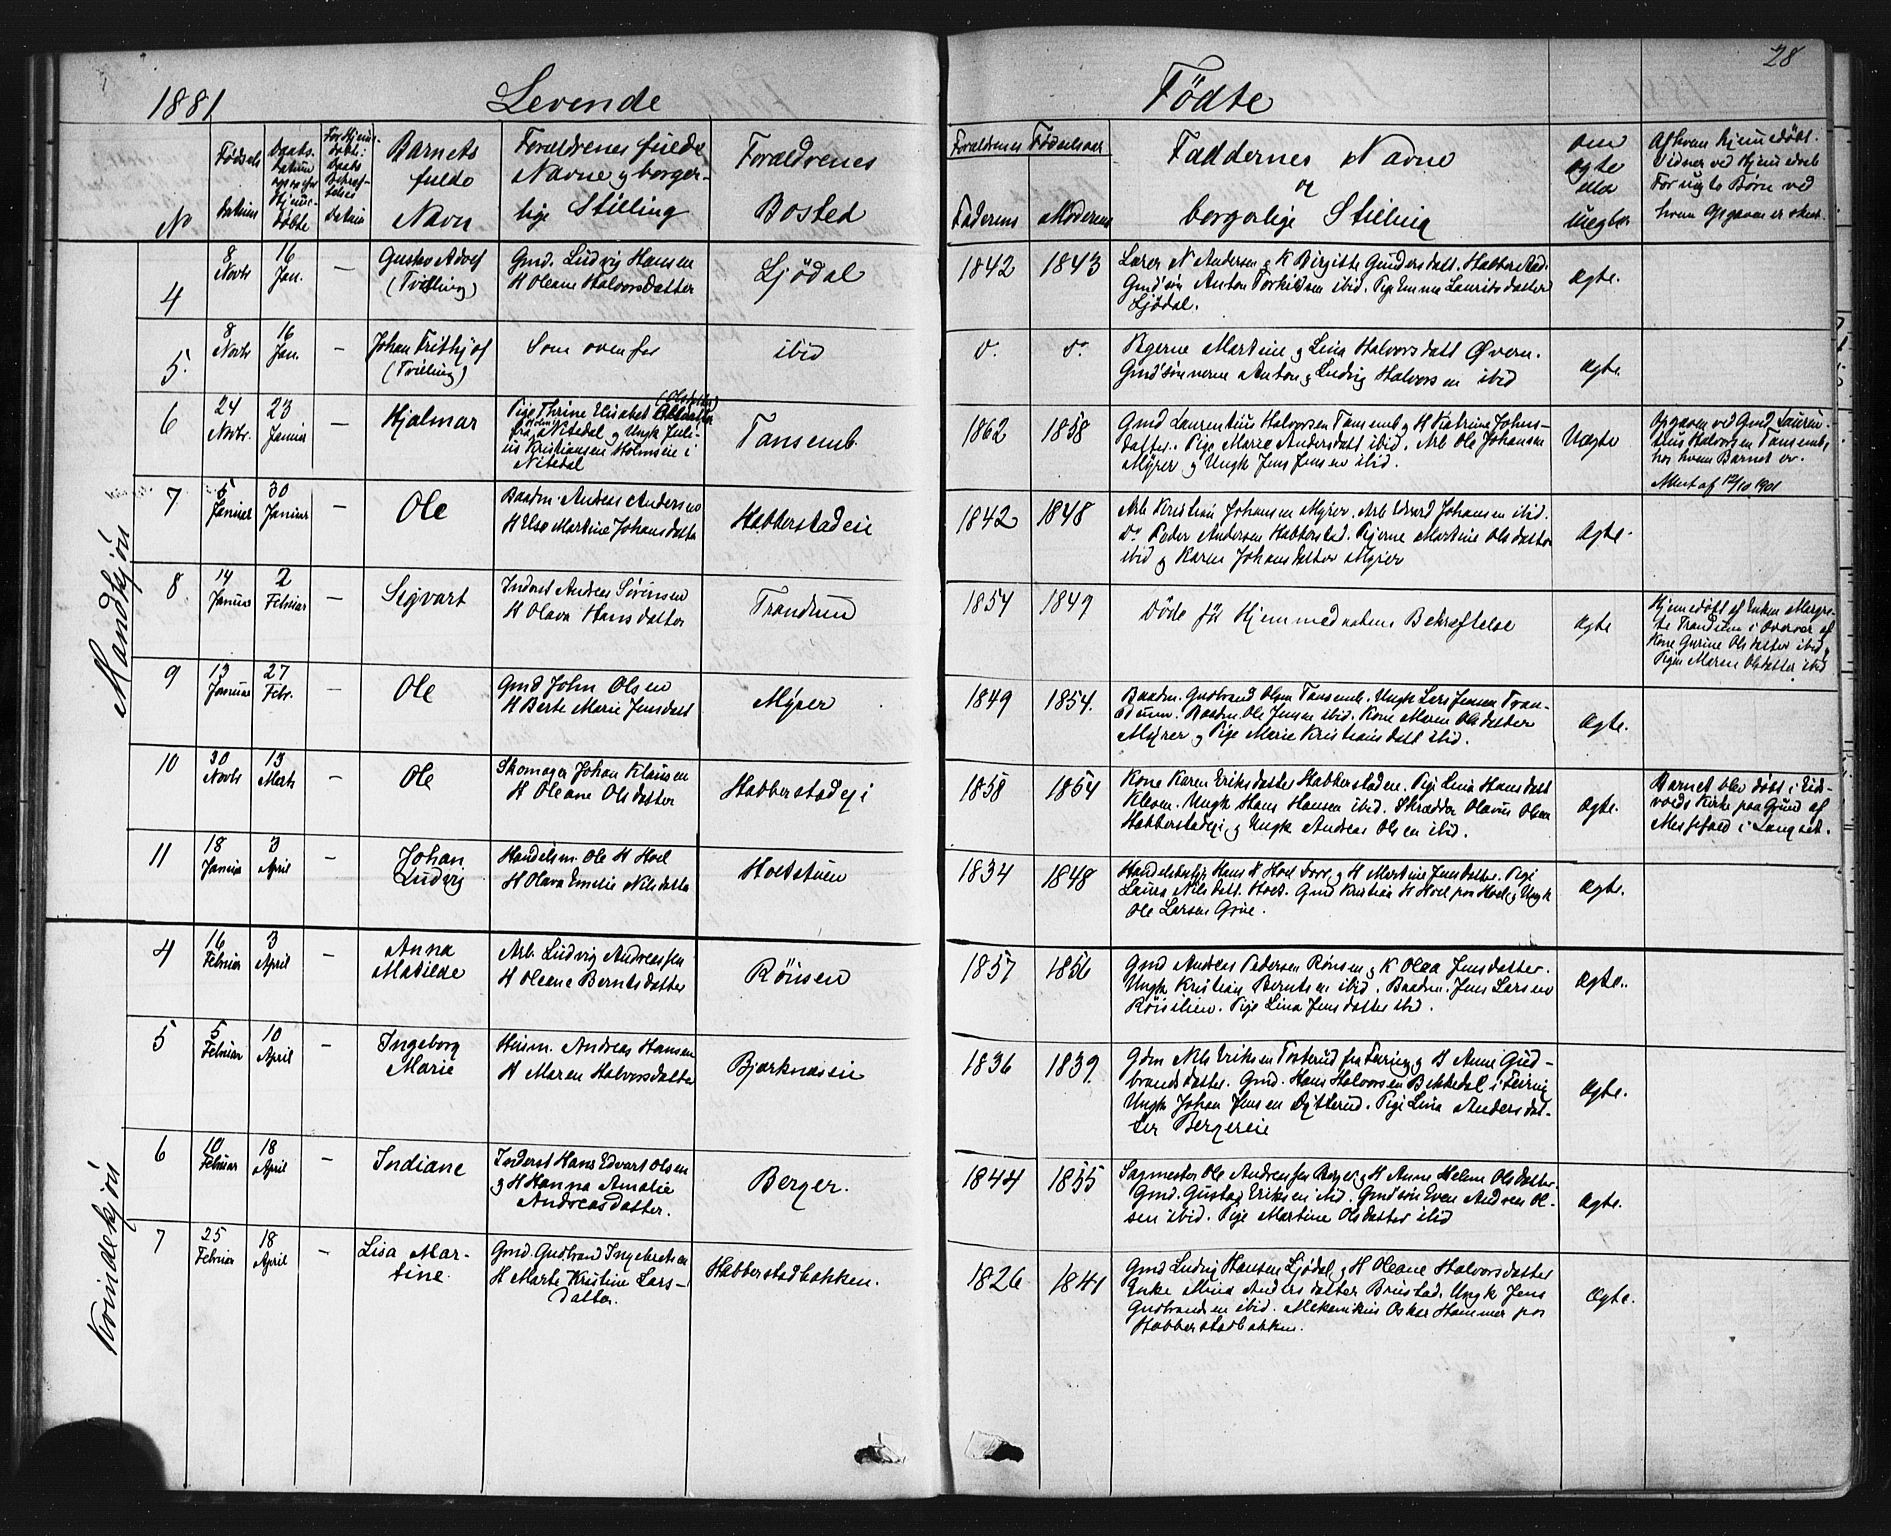 28
1881 Levende Födte
No
Födsels
Datum
Barnets
fulde
Navn
Forældrenes fulde
Navne og borger-
lige Stilling
Forældrenes
Bosted
Forældrenes Fødselsaar
Faderens Moderens
Faddernes Navne
og
borgerlige Stilling
om
ægte
eller
uægte
Af hvem hjemmedöbt.
Vidner ved Hjemmedaab
For uægte Børn ved
hvem Opgaven er skeet.
Mandkjön
4
8 Novbr
16 Jan.
—
Gustav Adolf
(Tvilling)
Gmd. Ludvig Hansen
H Oleane Halvorsdatter
Ljödal
1842 1843
Lærer N Andersen og K Birgitte Gundersdatt. Habberstad.
Gmd'sön Anton Torkildsen ibid. Pige Emma Lauritsdatter
Ljödal.
Ægte.
5.
8 Novbr
16 Jan.
—
Johan Frithjof
(Tvilling)
Som ovenfor
ibid
d. d.
Pigerne Martine og Lina Halvorsdatt Øvern.
Gmd'sønnerne Anton og Ludvig Halvorsen ibid
Ægte
6
24 Novbr.
23 Januar
—
Hjalmar
Pige Thrine Elisabet
fra Nitedal og Ungk Juli-
us Kristiansen Holmseie i
Nitedal
Tansemb.
1862 1858
Gmd Laurentius Halvorsen Tansemb og H Katrine Johns-
datter. Pige Marie Andersdatt ibid. Arb. Ole Johansen
Myrer og Ungk Jens Jensen ibid.
Uægte
Opgaven ved Gmd Lauren-
tius Halvorsen Tansemb,
hos hvem Barnet er.
Attest af 12/10 1901
7
5 Januar
30 Januar
—
Ole
Baadm. Andreas Andersen
H Else Martine Johansdatter
Habberstadeie
1842 1848
Arb Kristian Johansen Myrer. Arb Edvard Johansen ibid.
Do Peder Andersen Habberstad. Pigerne Martine Olsdatter
ibid og Karen Johansdatter Myrer
Ægte.
8
14 Januar
2 Februar
—
Sigvart
Inderst Andreas Sørensen
H Olava Hansdatter
Trandum
1854 1849
Döde för Hjemmedaabens Bekræftelse
Ægte
Hjemmedöbt af Enken Margre-
te Trandum i Overvær af
Kone Gurine Olsdatter ibid og
Pigen Maren Olsdatter ibid
9
13 Januar
27 Febr.
—
Ole
Gmd John Olsen
H Berte Marie Jensdatt
Myrer
1849 1854.
Baadm. Gudbrand Olsen Tansemb. Ungk Lars Jensen Tran-
dum. Baadm. Ole Jensen ibid. Kone Maren Olsdatter
Myrer og Pige Marie Kristiansdatt ibid.
Ægte.
10
30 Novbr
13 Marts
—
Ole
Skomager Johan Klausen
H Oleane Olsdatter
Habberstadeji
1858 1854
Kone Karen Eriksdatter Habberstadeie. Pige Lina Hansdatt
Kleven. Ungk Hans Hansen ibid. Skrædder Olavus Olsen
Habberstadeji og Ungk Andreas Olsen ibid.
Ægte.
Barnet blev döbt i Eid-
volds Kirke paa Grund af
Messefald i Langset.
11
18 Januar
3 April
—
Johan
Ludvig
Handelsm. Ole H Hoel
H Olava Emelie Nilsdatter
Holtstuen
1834 1848
Handelsbetj. Hans H Hoel og H Martine Jensdatter. Pige
Laura Nilsdatt. Holt. Gmd Kristian H Hoel paa Hoel og Ungk
Ole Larsen
Ægte.
Kvindekjön
4
16 Februar
3 April
—
Anna
Matilde
Arb. Ludvig Andreassen
H Oleane Berntsdatter
Rönsen
1857 1856
Gmd Andreas Pedersen Rönsen og K Olea Jensdatter.
Ungk Kristian Berntsen ibid. Baadm. Jens Larsen
Röisilien. Pige Lina Jensdatter ibid.
Ægte.
5
5 Februar
10 April
—
Ingeborg
Marie
Husm. Andreas Hansen
H Maren Halvorsdatter
Bjørknæseie
1836 1839
Gdm Nils Eriksen Tosterud fra Feiring og H Anne Gud-
brandsdatter. Gmd. Hans Halvorsen Bekkedal i Feiring
Ungk Johan Jensen Dytterud. Pige Lina Andersdat-
ter Bergereie
Ægte.
6
10 Februar
18 April
—
Indiane
Inderst Hans Edvart Olsen
og H Hanna Amalie
Andreasdatter.
Berger.
1844 1855
Sagmester Ole Andreassen Berger og H Anne Helene Olsdatter.
Gmd. Gustav Eriksen ibid. Gmd'sön Even Andreas Ol-
sen ibid. Pige Martine Olsdatter ibid
Ægte.
7
25 Februar
18 April
—
Lisa Mar-
tine
Gmd. Gudbrand Ingebretsen
H Marte Kristine Lars-
datter.
Habberstadbakken.
1826 1841
Gmd Ludvig Hansen Ljödal og H Oleane Halvorsdatter
Enke Mina Andersdatter Brustad. Ungk Jens
Gudbrandsen ibid. Mekanikus Oskar Hammer paa
Habberstadbakken.
Ægte.